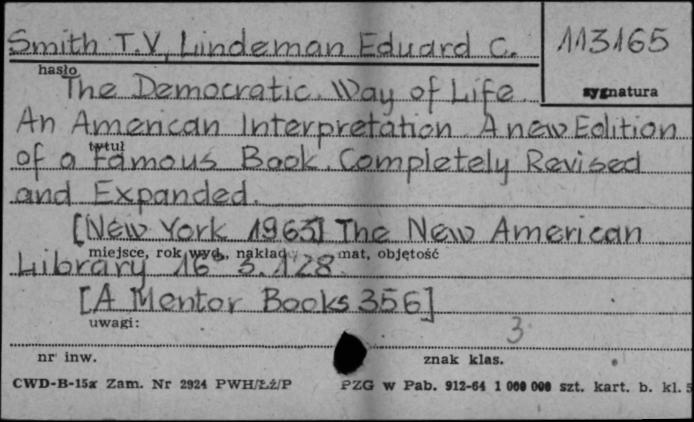 Smith T.V., Lindeman Eduard C.
113165
hasło
sygnatura
The Democratic Way of Life
An American Interpretation. A new Edition
tytuł
of a Famous Book. Completely Revised
and Expanded.
[New York 1963] The New American
miejsce, rok wyd., nakład, mat, objętość
Library 16° s. 128.
[A Mentor Books 356]
uwagi:
3
nr inw.
znak klas.
CWD-B-15a Zam. Nr 2924 PWH/Łż/P
PZG w Pab. 912-64 1 000 000 szt. kart. b. kl. 5